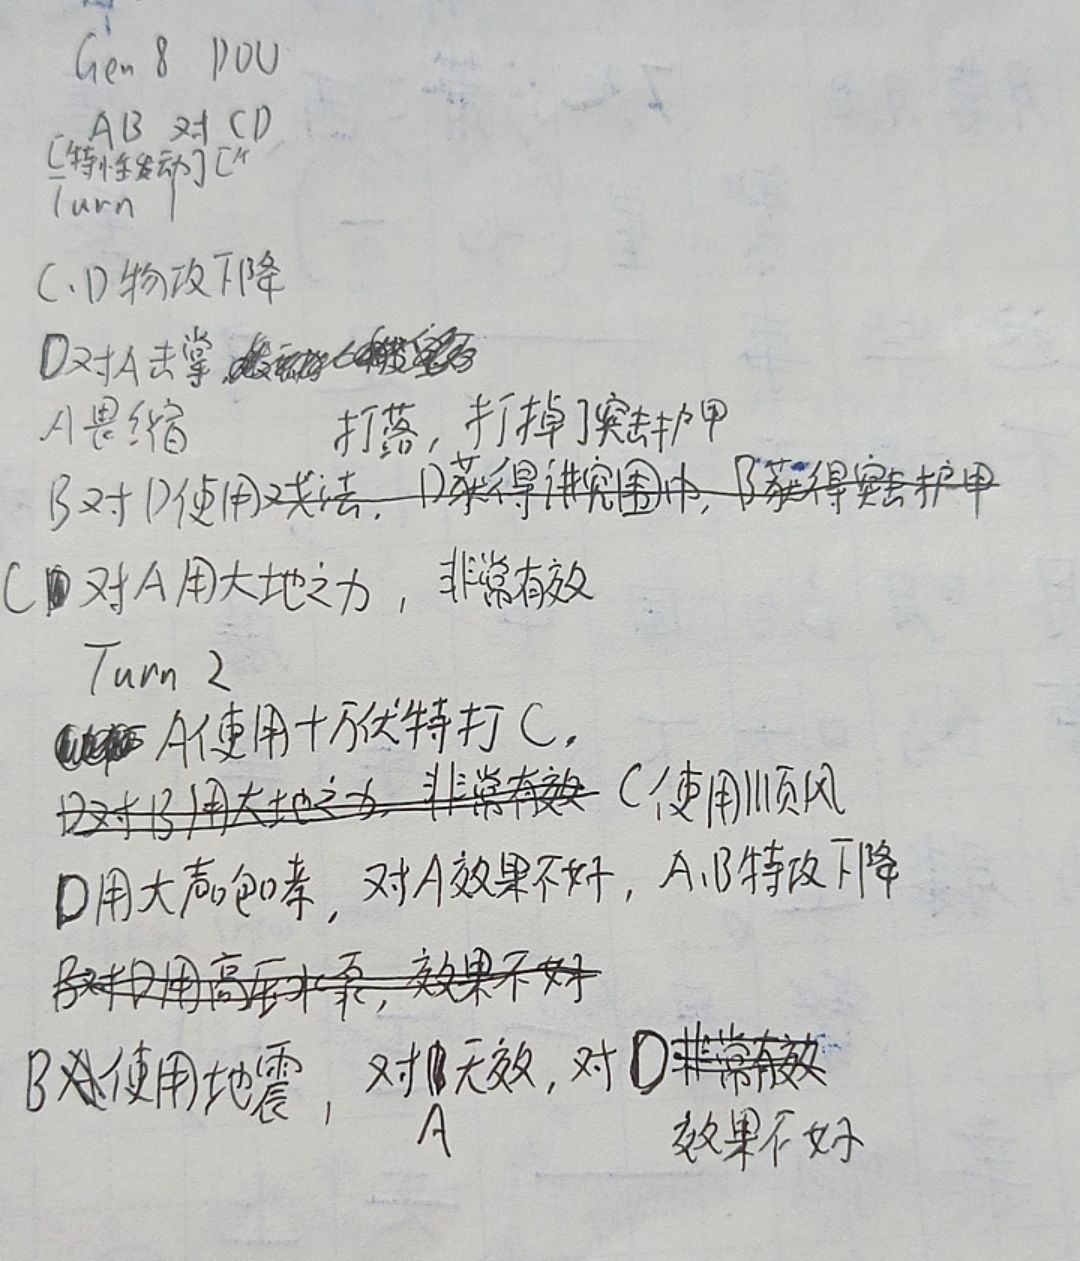 Gen 8 DOU
AB 对 CD
[特性发动]
Turn 1
C、D物攻下降
D对A击掌
A畏缩 打落，打掉了突击护甲
B对D使用戏法，D获得讲究围巾，B获得突击护甲
C 对A用大地之力，非常有效
Turn 2
A使用十万伏特打C。
D对B用大地之力，非常有效 C使用顺风
D用大声咆哮，对A效果不好，A、B特攻下降
B对D用高压水泵，效果不好
B使用地震，对 无效，对D非常有效
A 效果不好